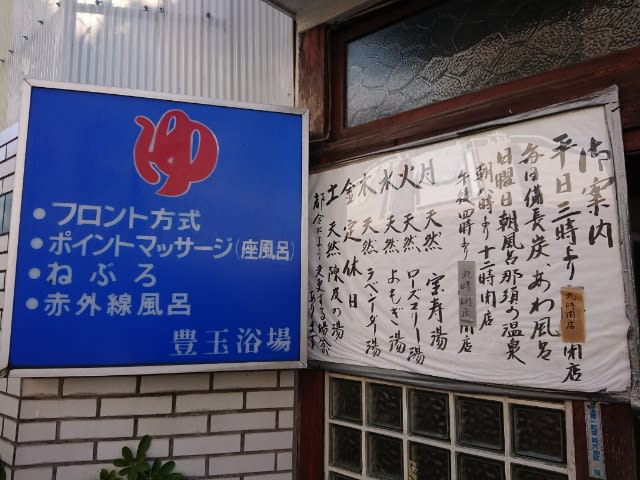 ゆ
・フロント方式
・ポイントマッサージ(座風呂)
・ねぶろ
・赤外線風呂
豊玉浴場
御案内
平日三時より 九時閉店 閉店
毎日備長炭、あわ風呂
日曜日朝風呂那須の温泉
朝八時より十二時閉店
午後四時より 九時閉店 閉店
月 天然 宝寿湯
火 天然 ローズマリー湯
水 天然 よもぎ湯
木 天然 ラベンダー湯
金 定休日
土 天然 陳皮の湯
都合により変更する場合
あります